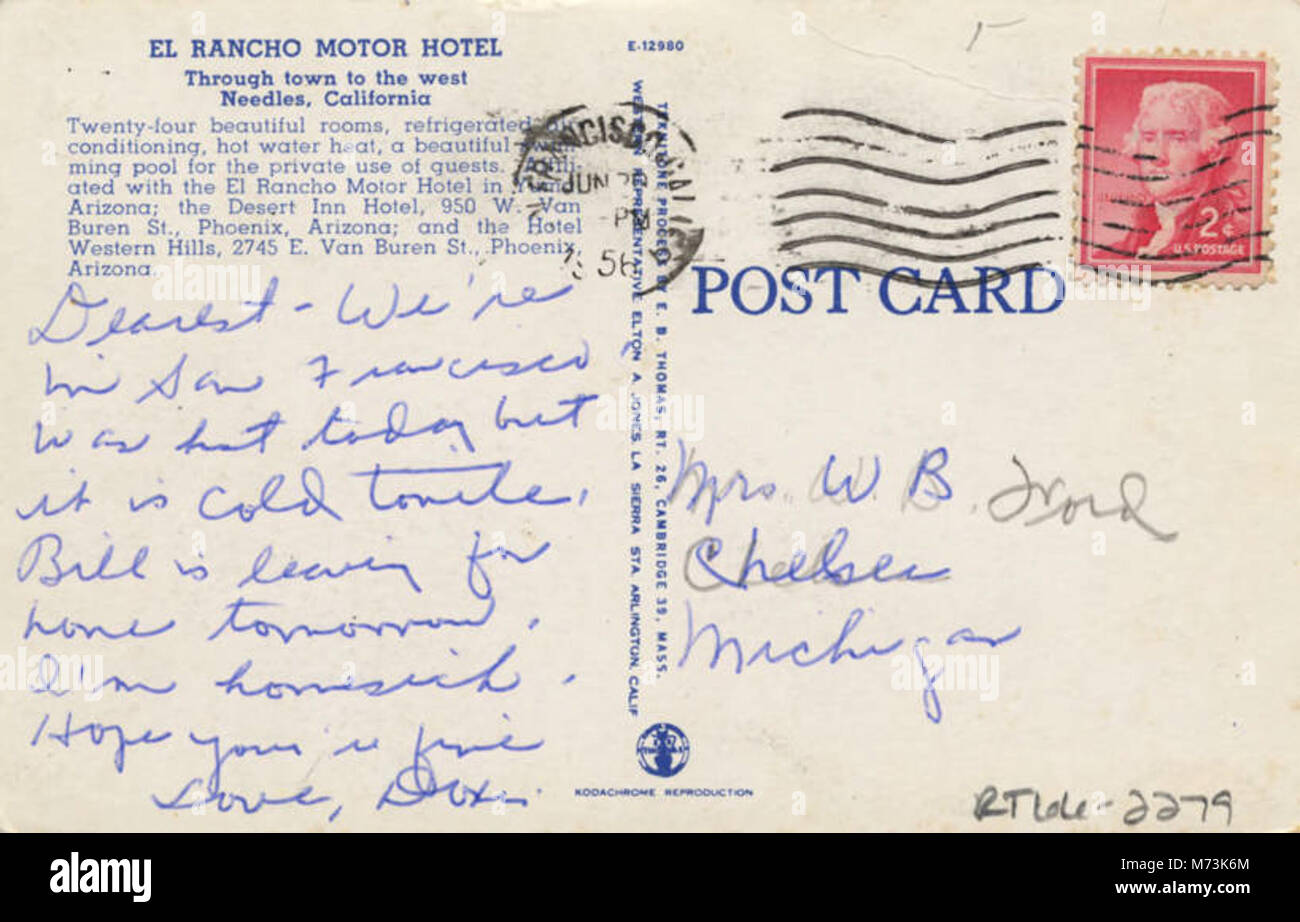 EL RANCHO MOTOR HOTEL
Through town to the west
Needles, California
Twenty-four beautiful rooms, refrigerated
conditioning, hot water heat, a beautiful
ming pool for the private use of guests.
ated with the El Rancho Motor Hotel in
Arizona; the Desert Inn Hotel, 950 W. Van
Buren St., Phoenix, Arizona; and the Hotel
Western Hills, 2745 E. Van Buren St., Phoenix,
Arizona.
Dearest - We're
in San Francisco,
was hot today but
it is cold tonite.
Bill is leaving for
home tomorrow.
I'm homesick.
Hope your is fine
Love,
E-12980
TEKNITONE PROCESS BY E. B. THOMAS, RT. 26, CAMBRIDGE 39, MASS.
WESTERN REPRESENTATIVE ELTON A. JONES, LA SIERRA STA. ARLINGTON, CALIF
KODACHROME REPRODUCTION
FRANCISCO, CALIF
JUN
PM
1956
2¢
U.S. POSTAGE
POST CARD
Mrs. W. B.
Chelsea
Michigan
2279
alamy
Image ID: M73K6M
www.alamy.com